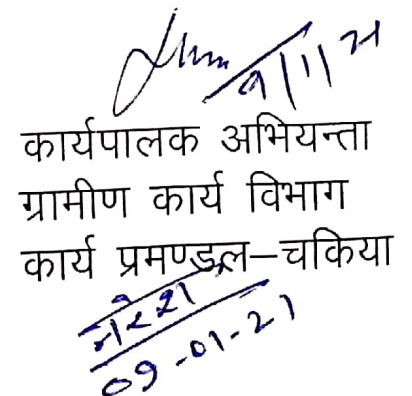 9/1/21
कार्यपालक अभियन्ता
ग्रामीण कार्य विभाग
कार्य प्रमण्डल–चकिया
नरेश
09-01-21